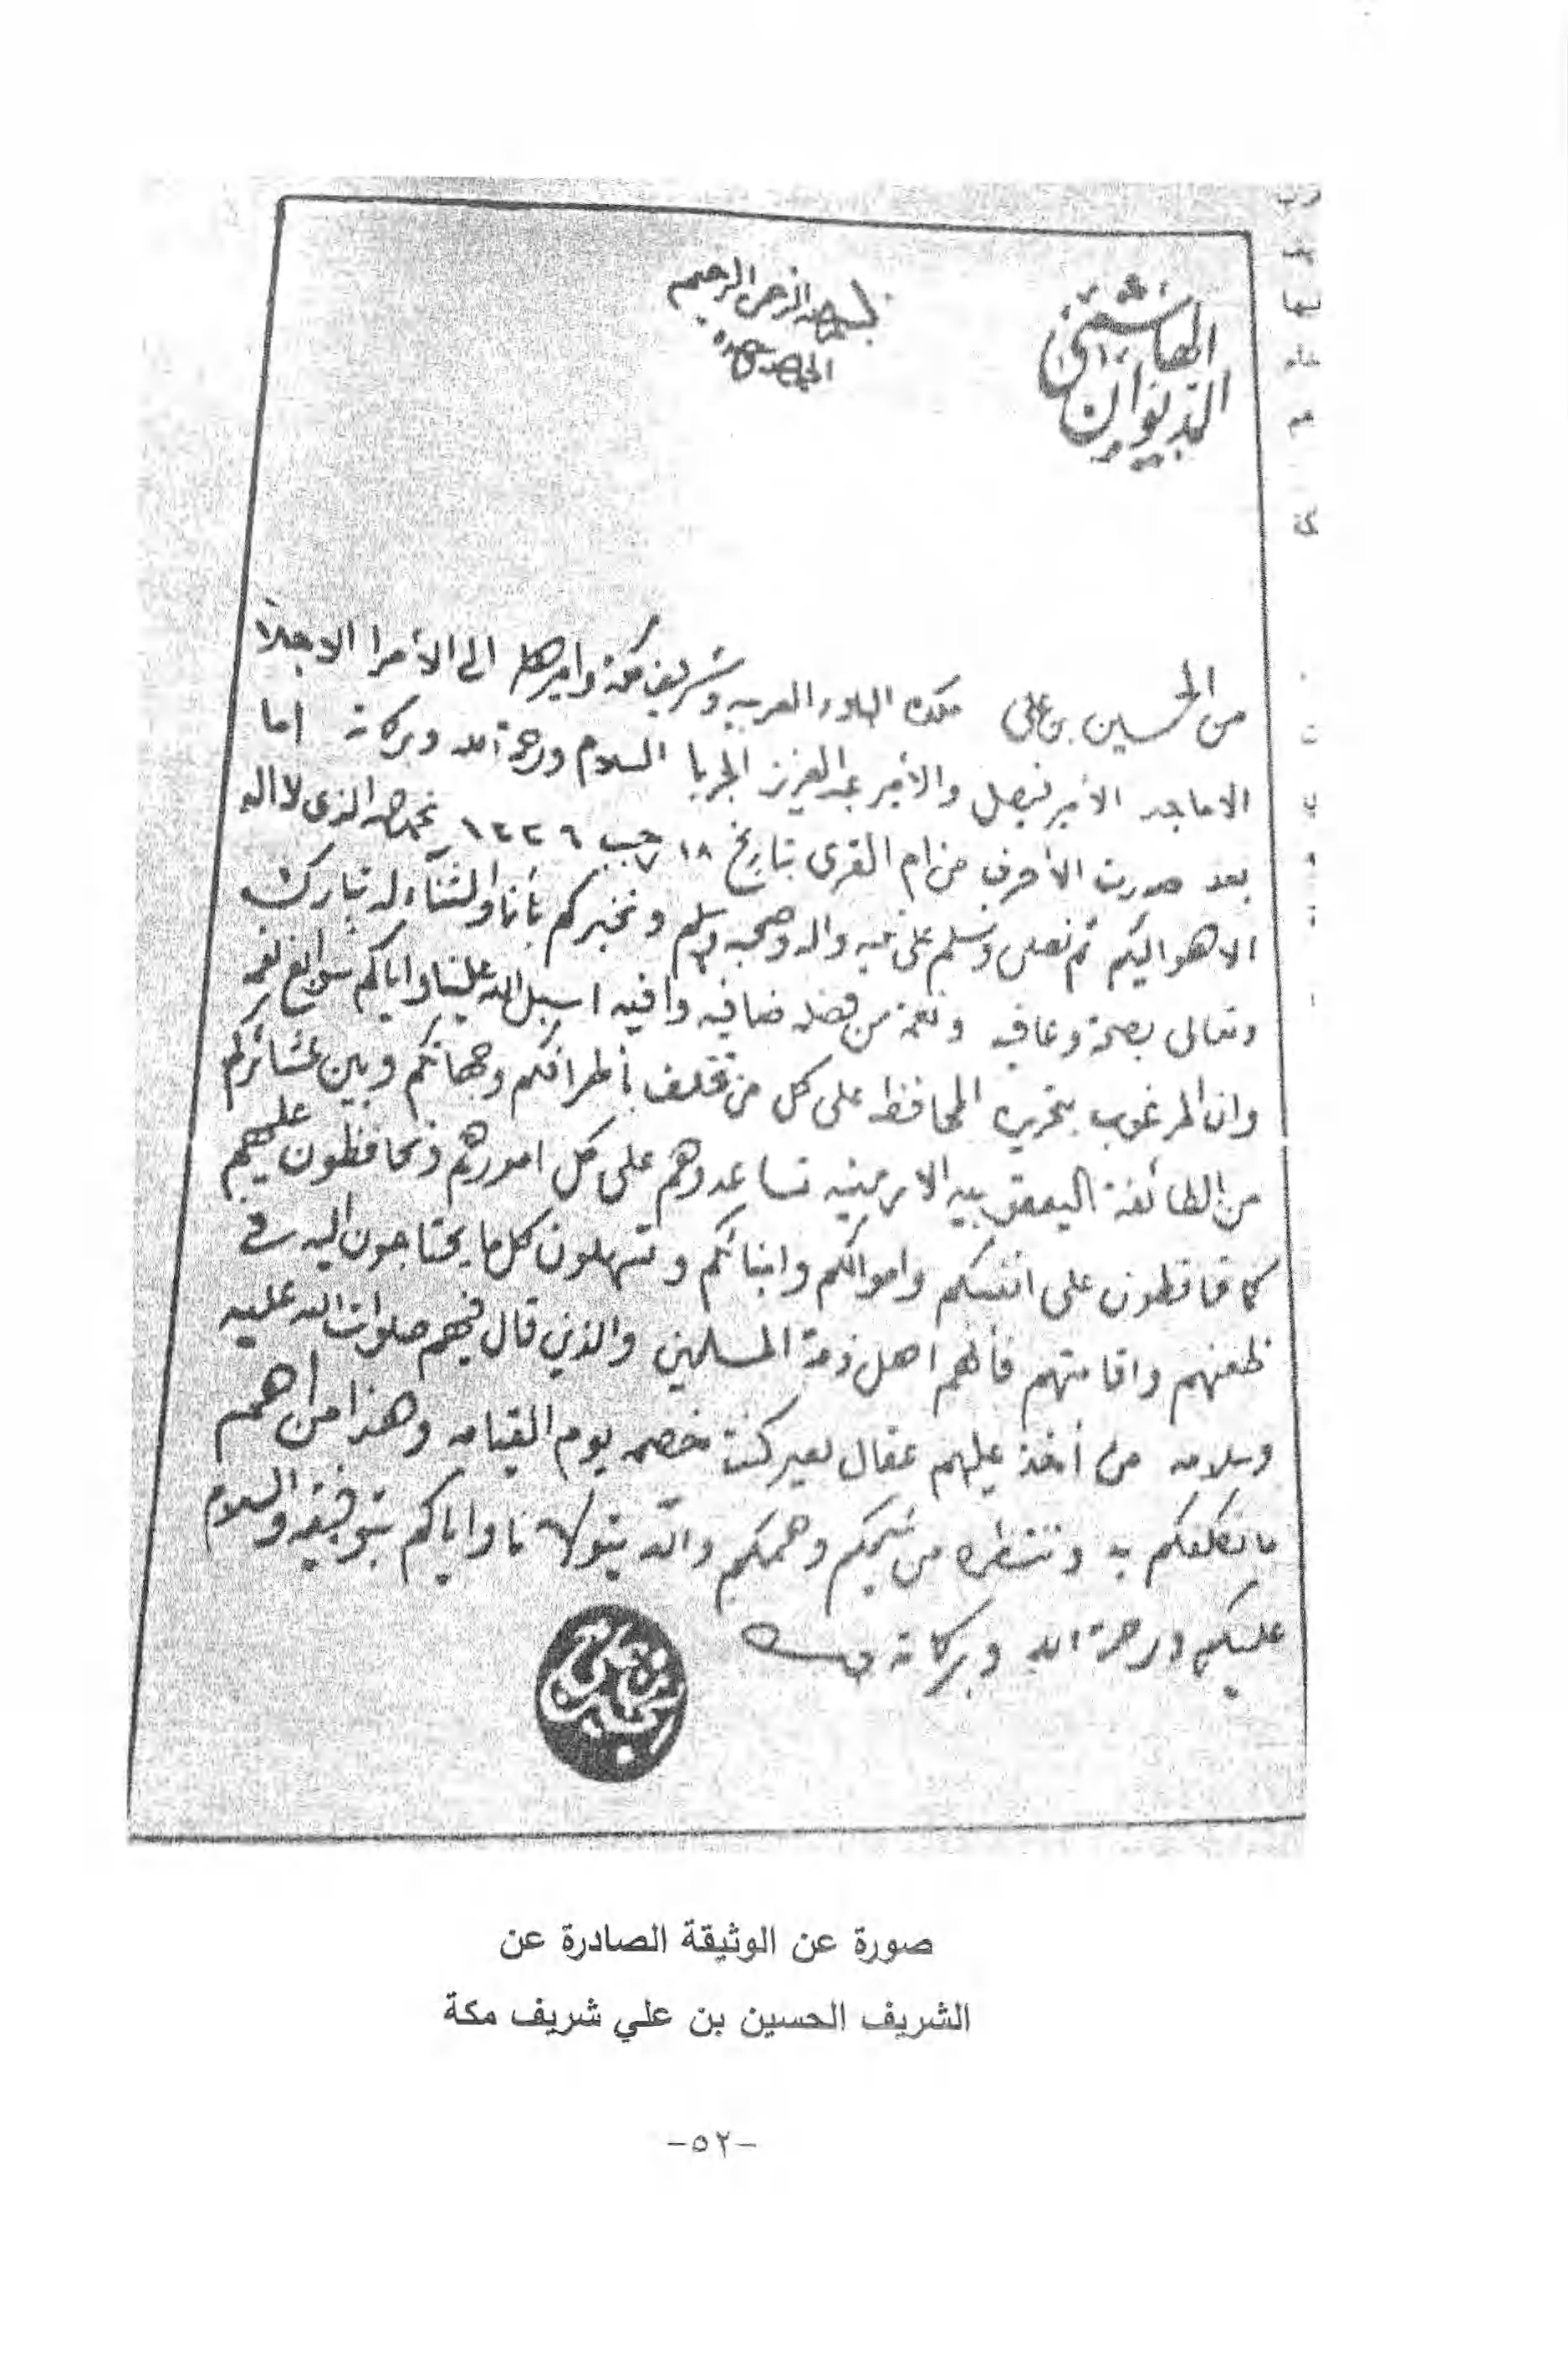 الديوان الهاشمي
بسم الله الرحمن الرحيم
الحمد لله وحده
من الحسين بن علي ملك البلاد العربيه وشريف مكة واميرها الى الأمرا الاجلاّ
الاماجد الأمير فيصل والأمير عبد العزيز الجربا السلام ورحمة الله وبركاته اما
بعد صدورت الأحرف من ام القرى بتاريخ ١٨ رجب ١٣٣٦ نحمد الله الذي لا اله
الا هو اليكم ثم نصلي ونسلم على نبيه واله وصحبه وسلم ونخبركم بأنا والثناء له تبارك
وتعالى بصحة وعافيه ونعمة من فضله ضافيه وافيه اسبل الله علينا واياكم سوابغ نعمه
وان المرغوب بتحريره المحافظه على كل من تخلف بأطرافكم وجهاتكم وبين عشائركم
من الطائفة اليعقوبيه الارمنيه تساعدوهم على كل امورهم وتحافظون عليهم
كما تحافظون على انفسكم واموالكم وابنائكم وتسهلون كل ما يحتاجون اليه في
ظعنهم واقامتهم فأنهم اهل ذمة المسلمين والذين قال فيهم صلوات الله عليه
وسلامه من أخذ عليهم عقال بعير كنت خصمه يوم القيامه وهذا من اهم
ما نكلفكم به وننتظره من شيمكم وهممكم والله يتولانا واياكم بتوفيقه والسلام
عليكم ورحمة الله وبركاته
صورة عن الوثيقة الصادرة عن
الشريف الحسين بن علي شريف مكة
-٥٢-